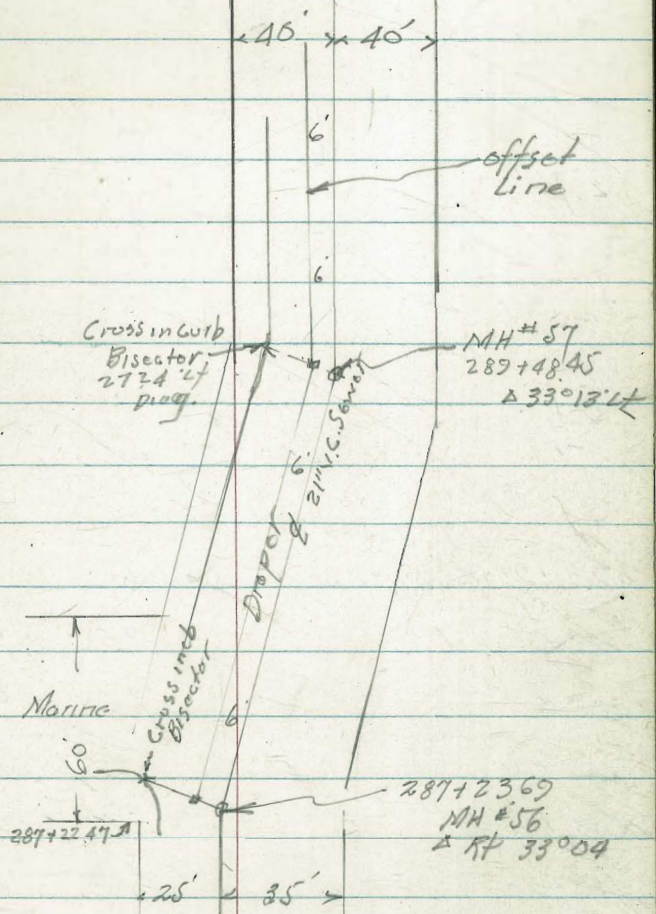 40' 40'
6'
offset
Line
6'
Cross in Curb
Bisector
27.24 Lt
Diag.
MH # 57
289+48.45
Δ 33°13' Lt
6'
Draper
₵ 21" V.C. Sewer
Cross in cb
Bisector
Marine
60'
6'
287+23.69
MH #56
Δ Rt 33°04
287+22.47
25' 35'